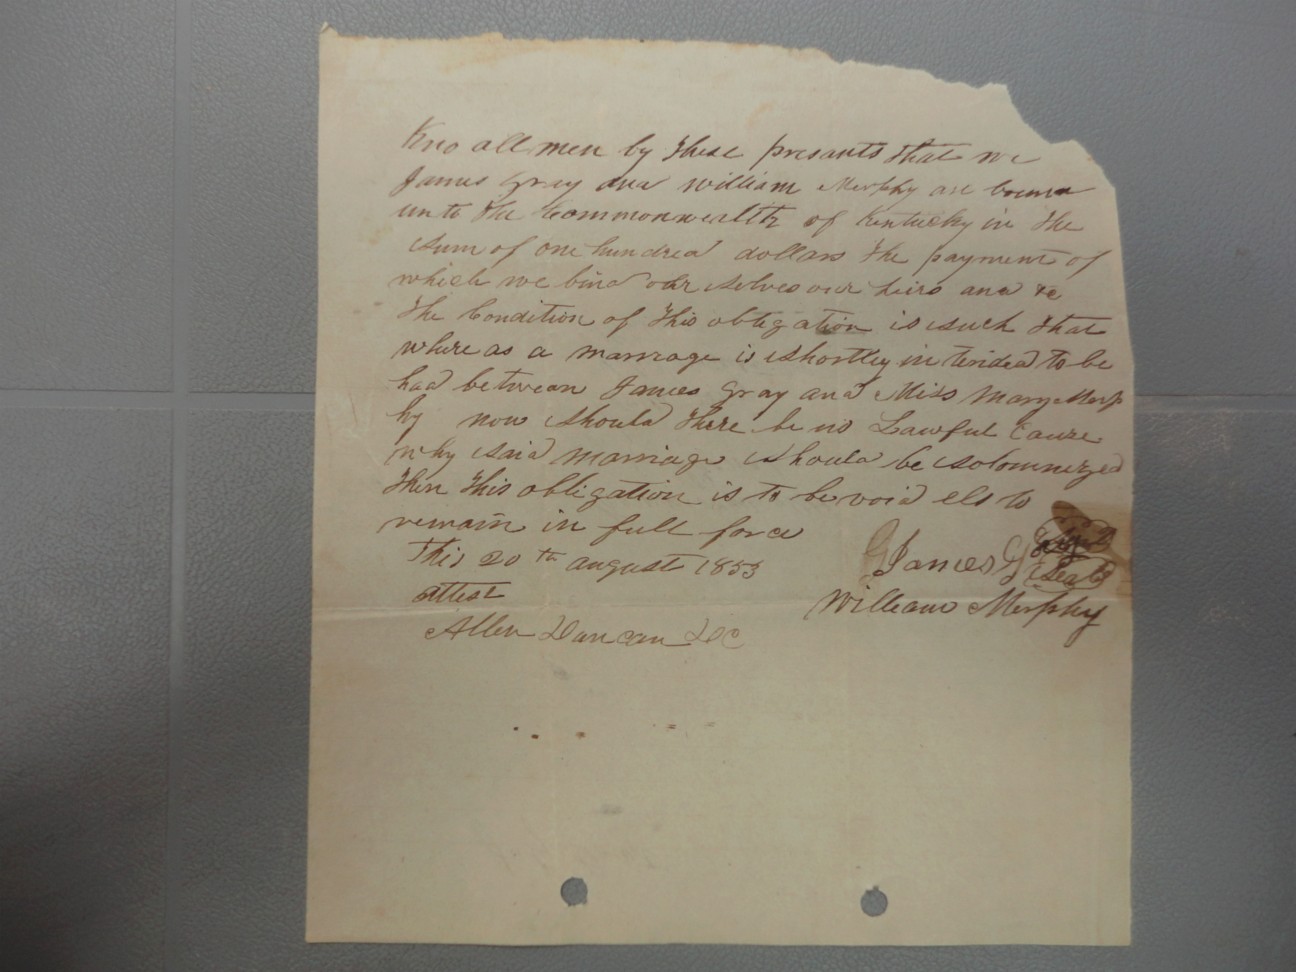 Kno all men by these presants that we
James Gray and William Murphy are bound
unto the Commonwealth of Kentucky in the
sum of one hundred dollars the payment of
which we bind our selves our heirs and &c
The Condition of this obligation is such that
where as a marriage is shortley in tended to be
had between James Gray and Miss Mary Murp
hy now should there be no Lawful Cause
why said marriage should be solomnized
then this obligation is to be void els to
remain in full force
This 20th august 1853
James G
Seal
attest
William Murphy
Allen Duncan DC